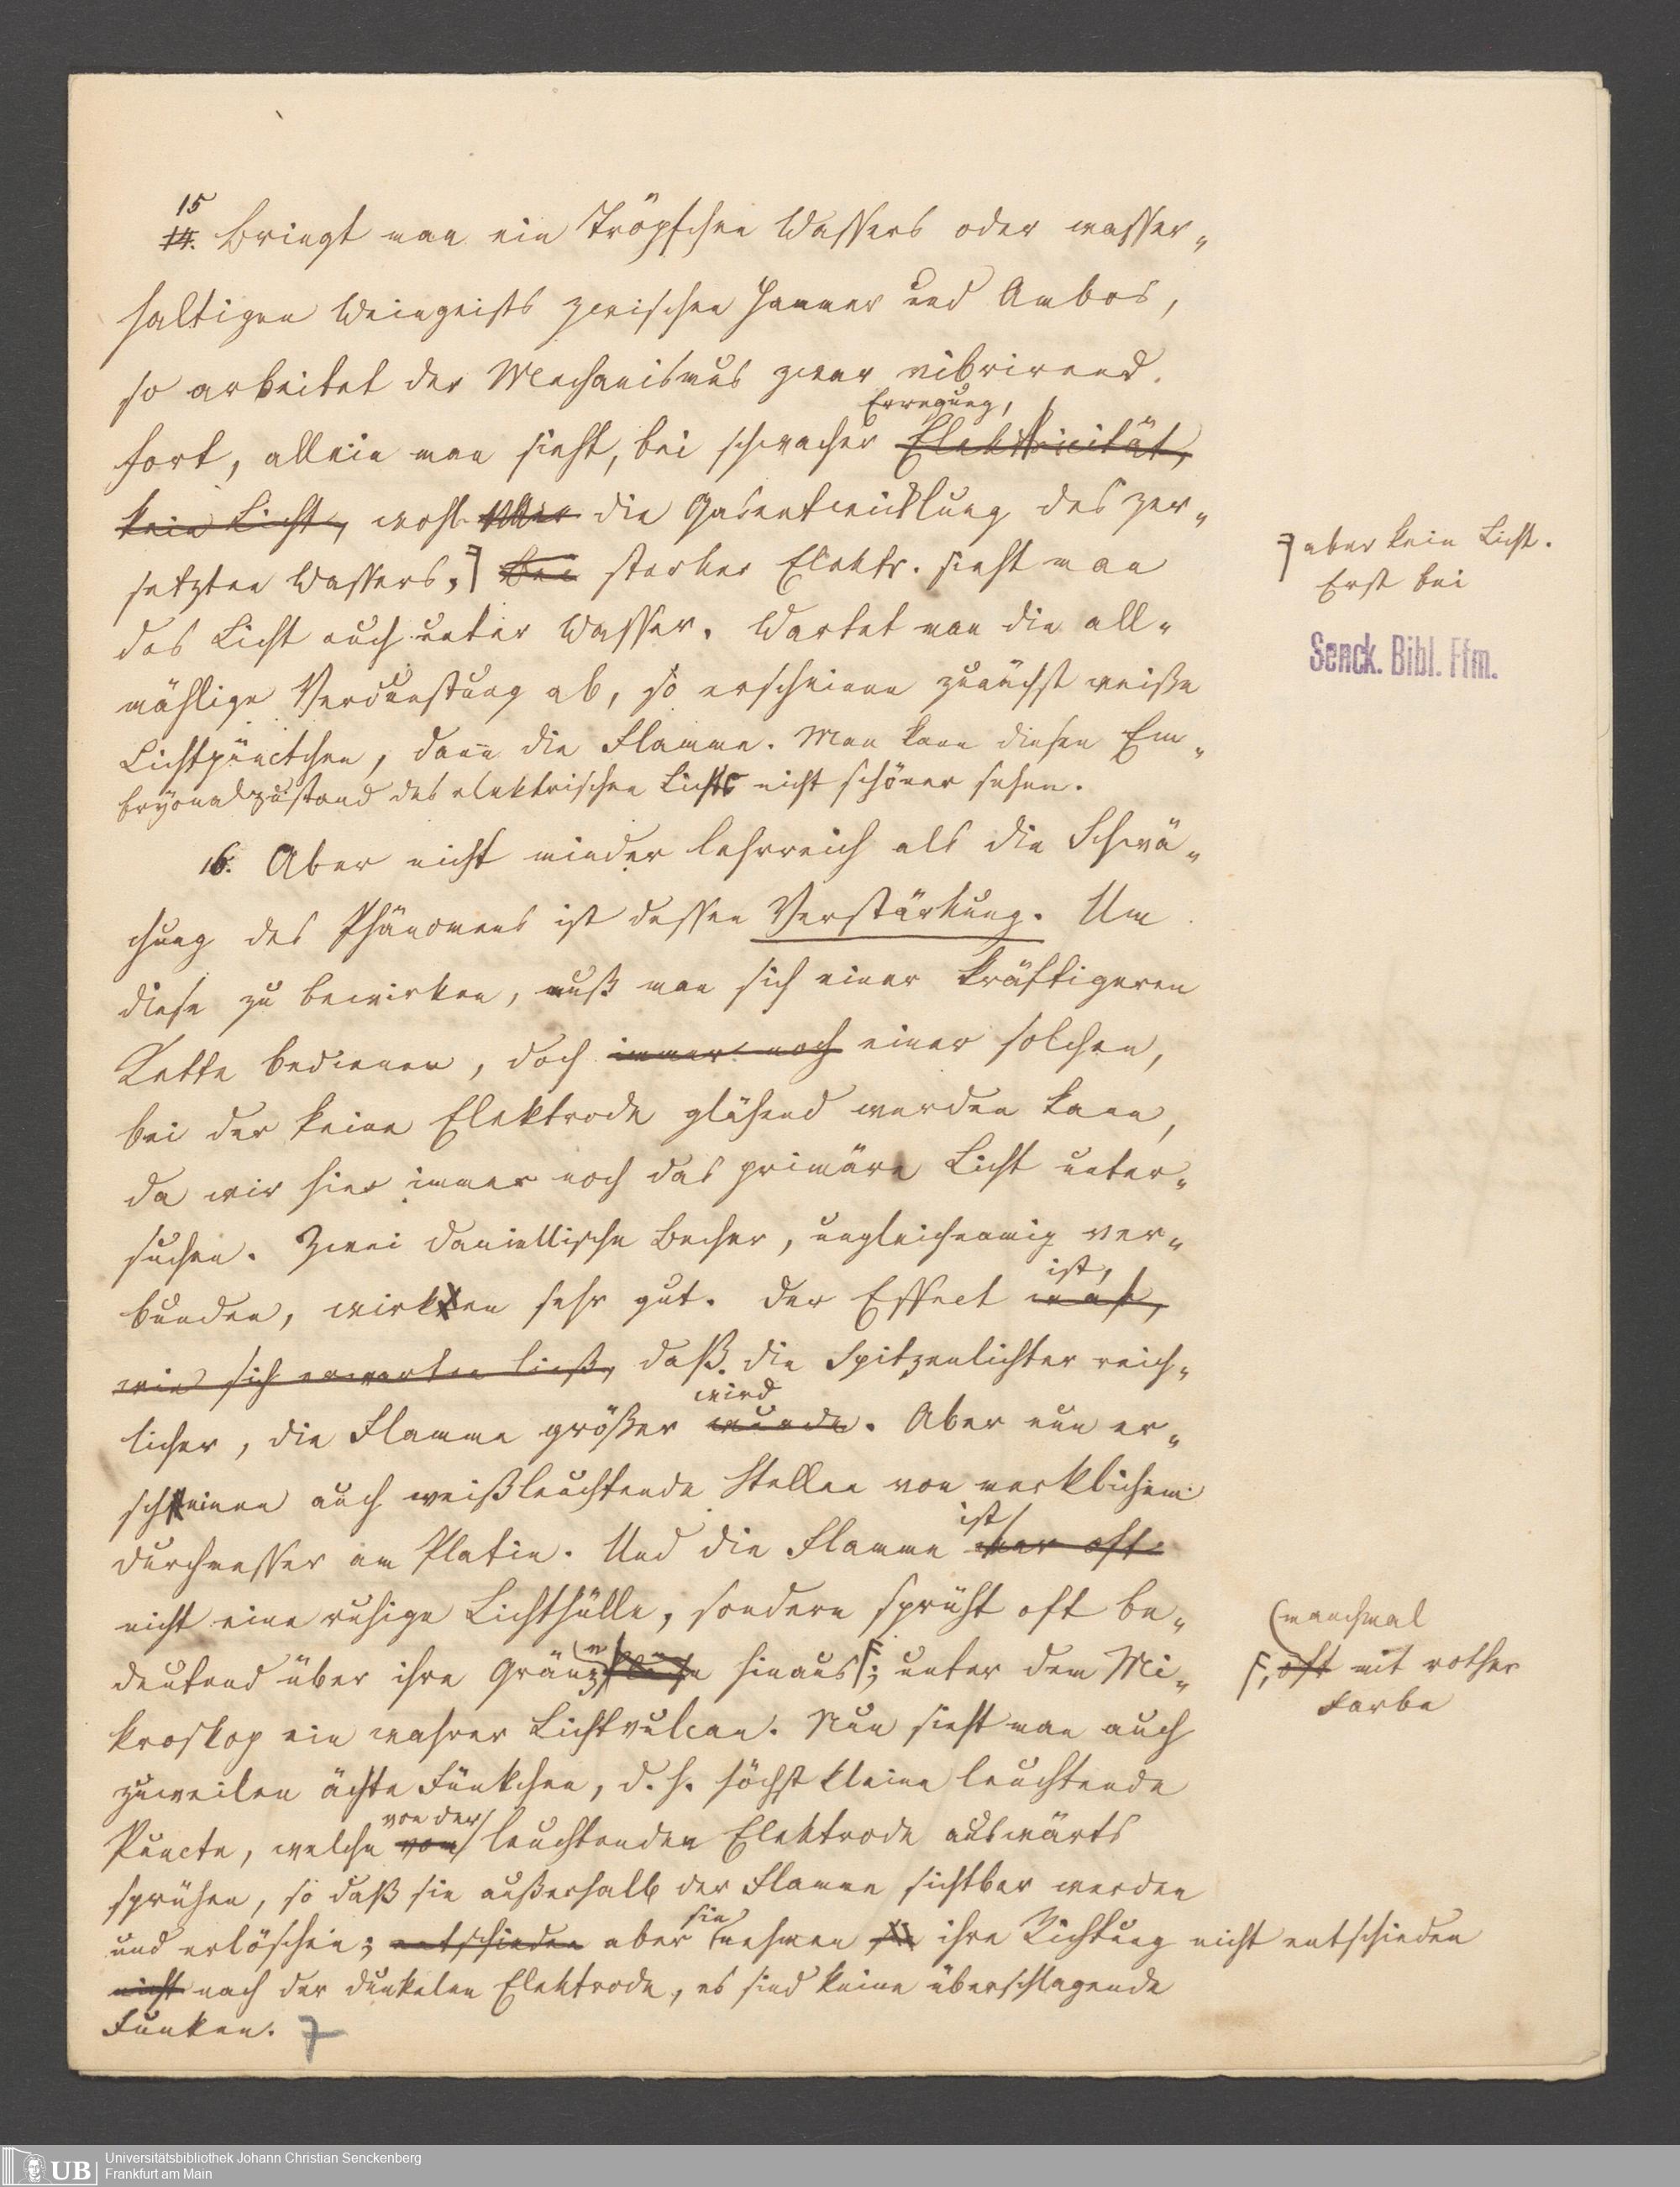 15
14. Bringt man ein Tröpfchen Wassers oder wasser„
haltigen Weingeists zwischen Hammer und Ambos,
so arbeitet der Mechanismus zwar vibrirend
Erregung,
fort, allein man sieht, bei schwacher Elektricität,
kein Licht, wohl aber die Gasentwicklung des zer„
setzten Wassers, Bei starker Elektr. sieht man
aber kein Licht.
Erst bei
das Licht auch unter Wasser. Wartet man die all„
Senck. Bibl. Ffm.
mählige Verdunstung ab, so erscheinen zunächst weiße
Lichtpünctchen, dann die Flamme. Man kann diesen Em„
bryonalzustand des elektrischen Lichts nicht schöner sehen.
16. Aber nicht minder lehrreich als die Schwä„
chung des Phänomens ist dessen Verstärkung. Um
diese zu bewirken, muß man sich einer kräftigeren
Kette bedienen, doch immer noch einer solchen,
bei der keine Elektrode glühend werden kann,
da wir hier immer noch das primäre Licht unter„
suchen. Zwei daniellische Becher, ungleichnamig ver„
ist,
bunden, wirken sehr gut. Der Effect war,
wie sich erwarten ließ, daß die Spitzenlichter reich„
wird
licher, die Flamme größer wurde. Aber nun er„
scheinen auch weißleuchtende Stellen von merklichem
ist
Durchmesser am Platin. Und die Flamme war oft
nicht eine ruhige Lichthülle, sondern sprüht oft be„
manchmal
deutend über ihre Gränzen hinaus; unter dem Mi„
, oft mit rother
Farbe
kroskop ein wahrer Lichtvulcan. Nun sieht man auch
zuweilen ächte Fünkchen, d. h. höchst kleine leuchtende
von der
Puncte, welche von leuchtenden Elektrode auswärts
sprühen, so daß sie außerhalb der Flamme sichtbar werden
sie
und erlöschen; entschieden aber nehmen sie ihre Richtung nicht entschieden
nicht nach der dunkelen Elektrode, es sind keine überschlagende
Funken. 7
UB Universitätsbibliothek Johann Christian Senckenberg
Frankfurt am Main